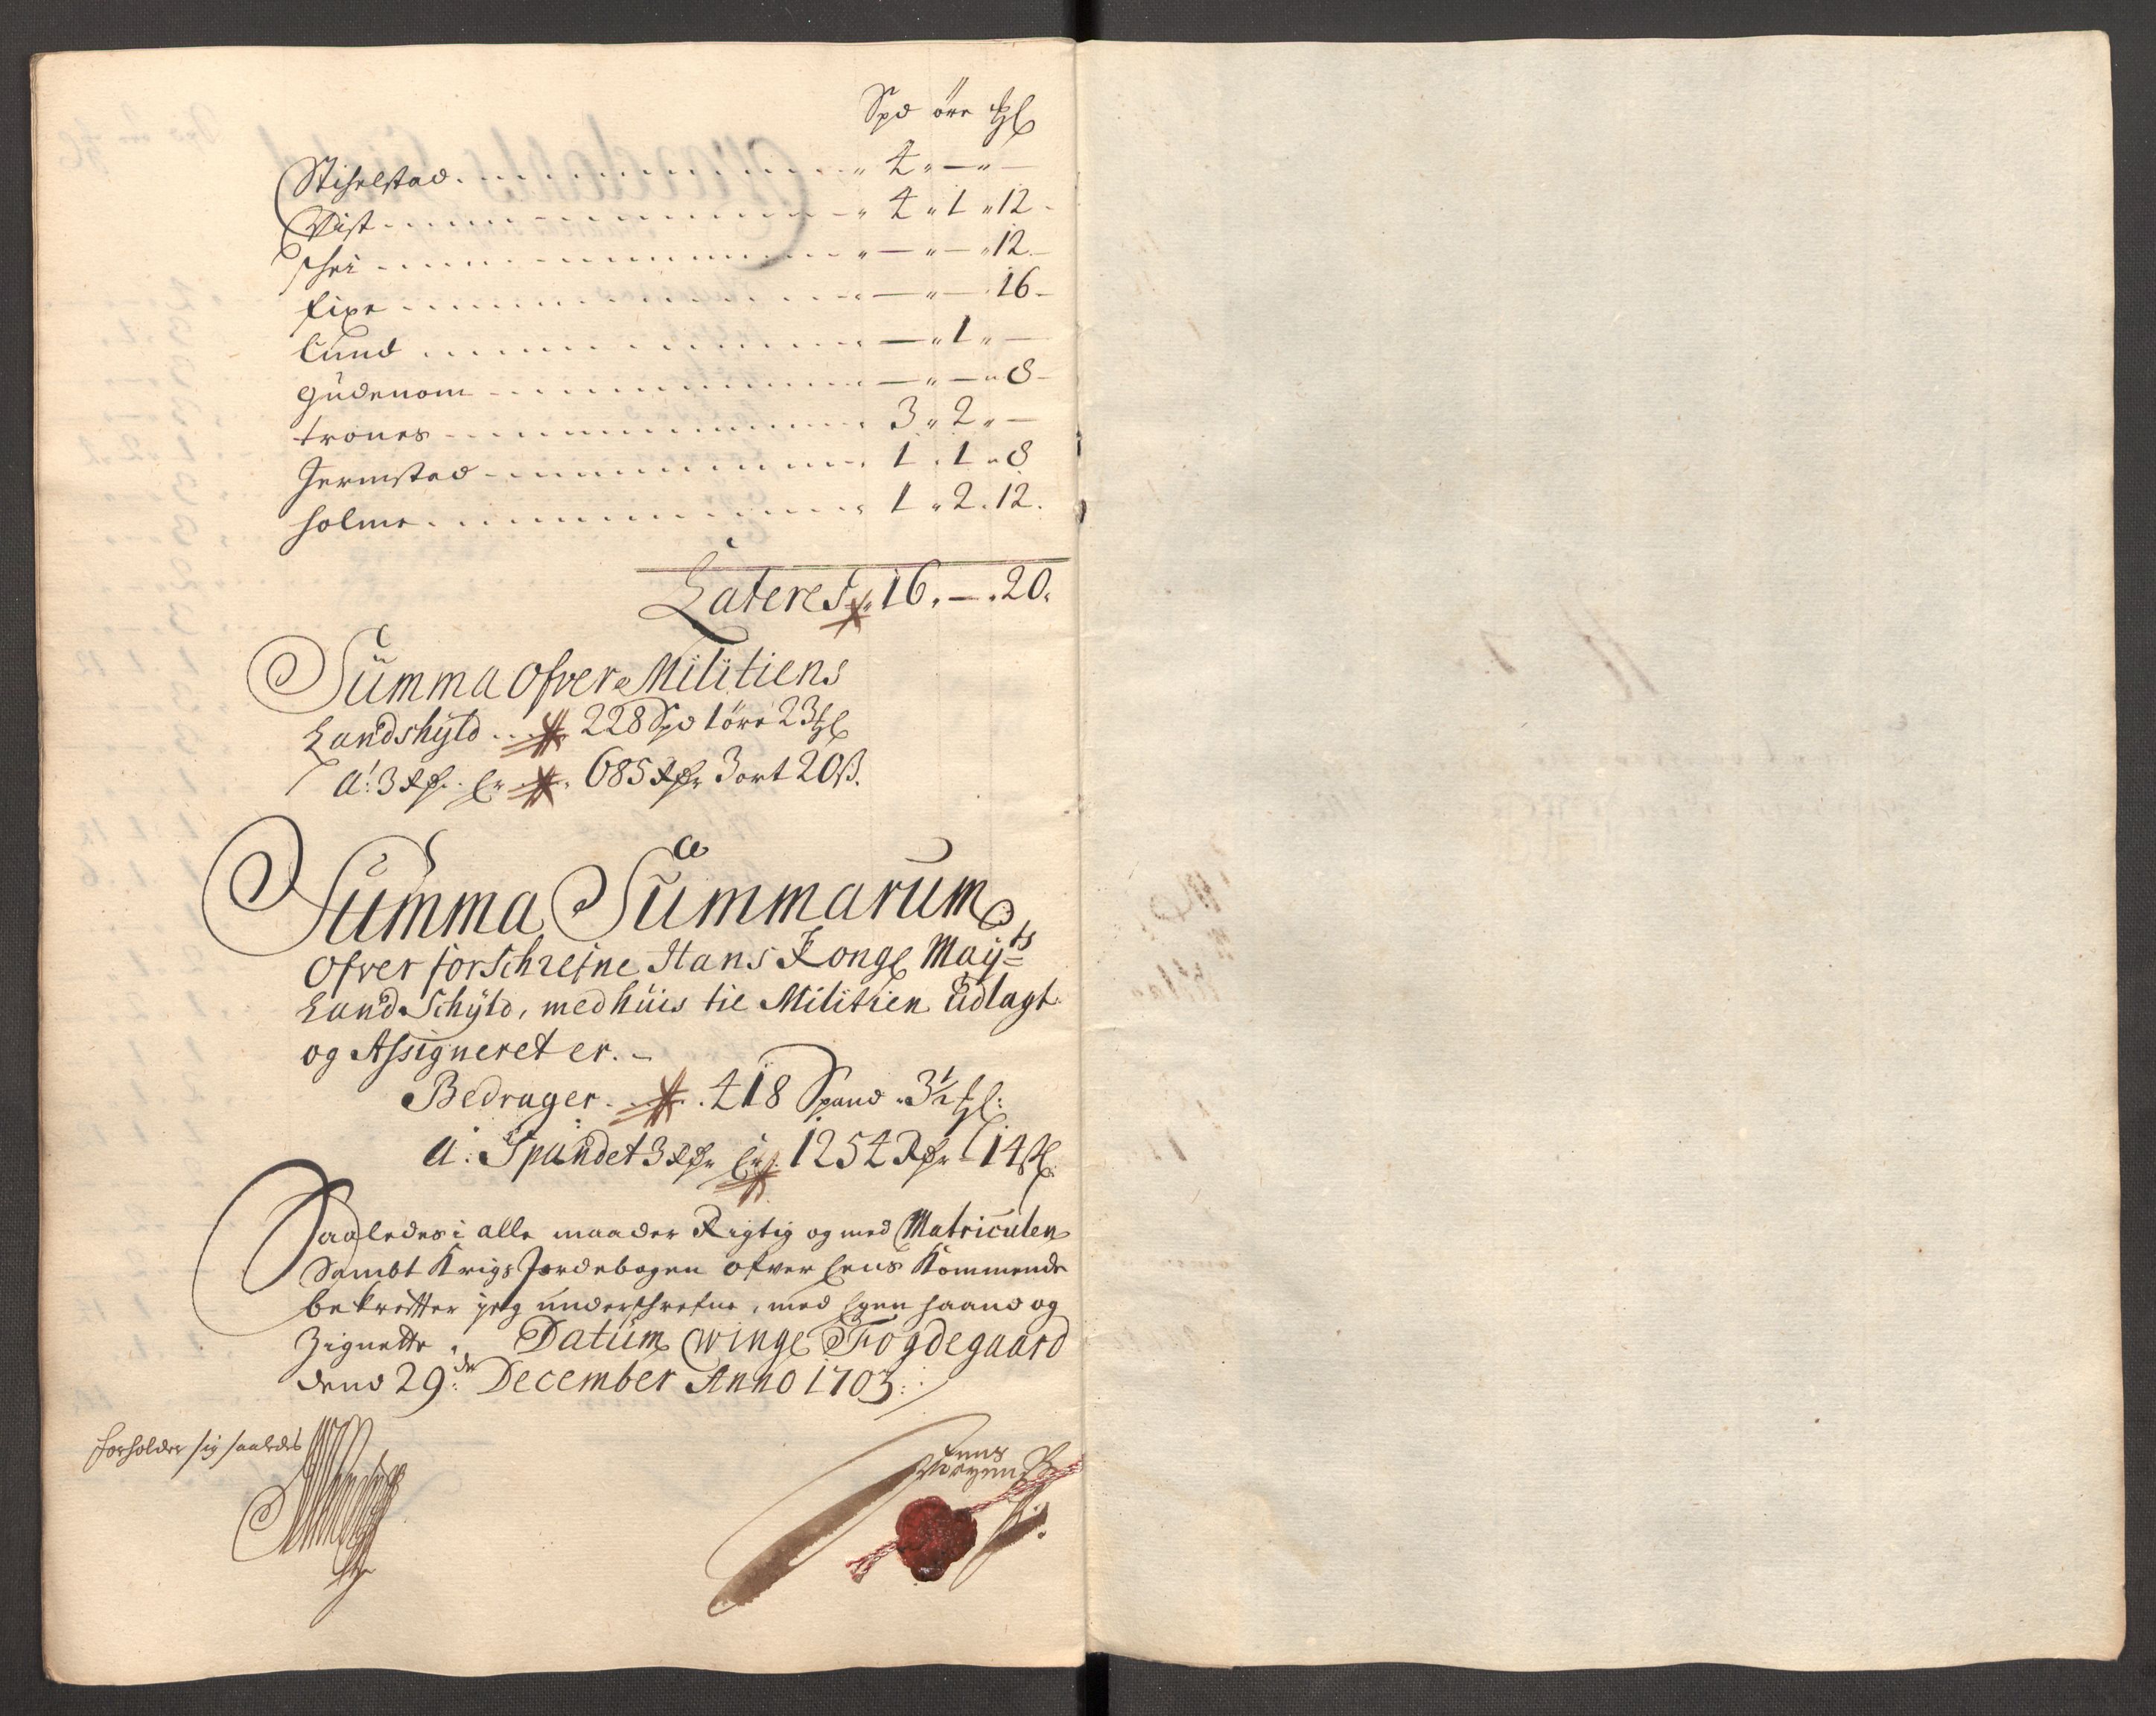 Spd öre ml
Stihelstad . . . 4 " — " —
Vist . . . 4 " 1 " 12
schei . . . — " — " 12
fixe . . . — " — 16
Lund . . . — " 1 " —
gudenom . . . — " — " 8
trones . . . 3 " 2 " —
Hermstad . . . 1 . 1 " 8
Holme . . . 1 " 2 . 12
Lateret . 16 . — . 20
Summa Ofver Militiens
Landshyld . . . 228 Spd 1 öre 23 ml
a: 3 Rdr. Er . 685 Rdr 3 ort 20 ß.
Summa Summarum
Ofver forschrefne Hans Kongl Mayts
Land Schyld, med huis til Militien Udlagt
og Assigneret er. –
Bedrager . . . 418 Spand . 3½ ml:
a: Spandet 3 Rdr Er . 1254 Rdr – 14 ß
Saaledes i alle maader Rigtig og med Matriculen
Sambt Krigs Jordebogen ofver Eens Kommende
bekrefter jeg underschrefne, med Egen haand og
Zignette, Datum Winge Fogdegaard
dend 29de December Anno 1703
forholder sig saaledes